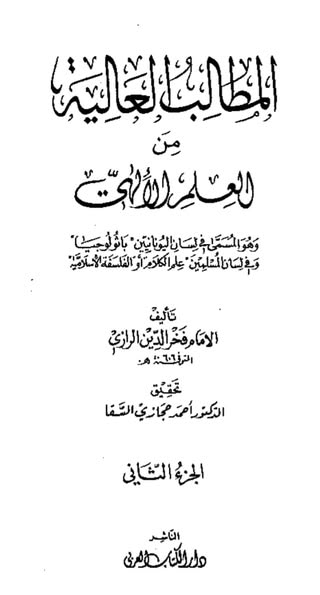 المطالب العالية
من
العلم الإلهي
وهو المسمى في لسان اليونانيين "باثولوجيا"
وفي لسان المسلمين "علم الكلام أو الفلسفة الإسلامية"
تأليف
الإمام فخر الدين الرازي
المتوفى ٦٠٦ هـ
تحقيق
الدكتور أحمد حجازي السقا
الجزء الثاني
الناشر
دار الكتاب العربي